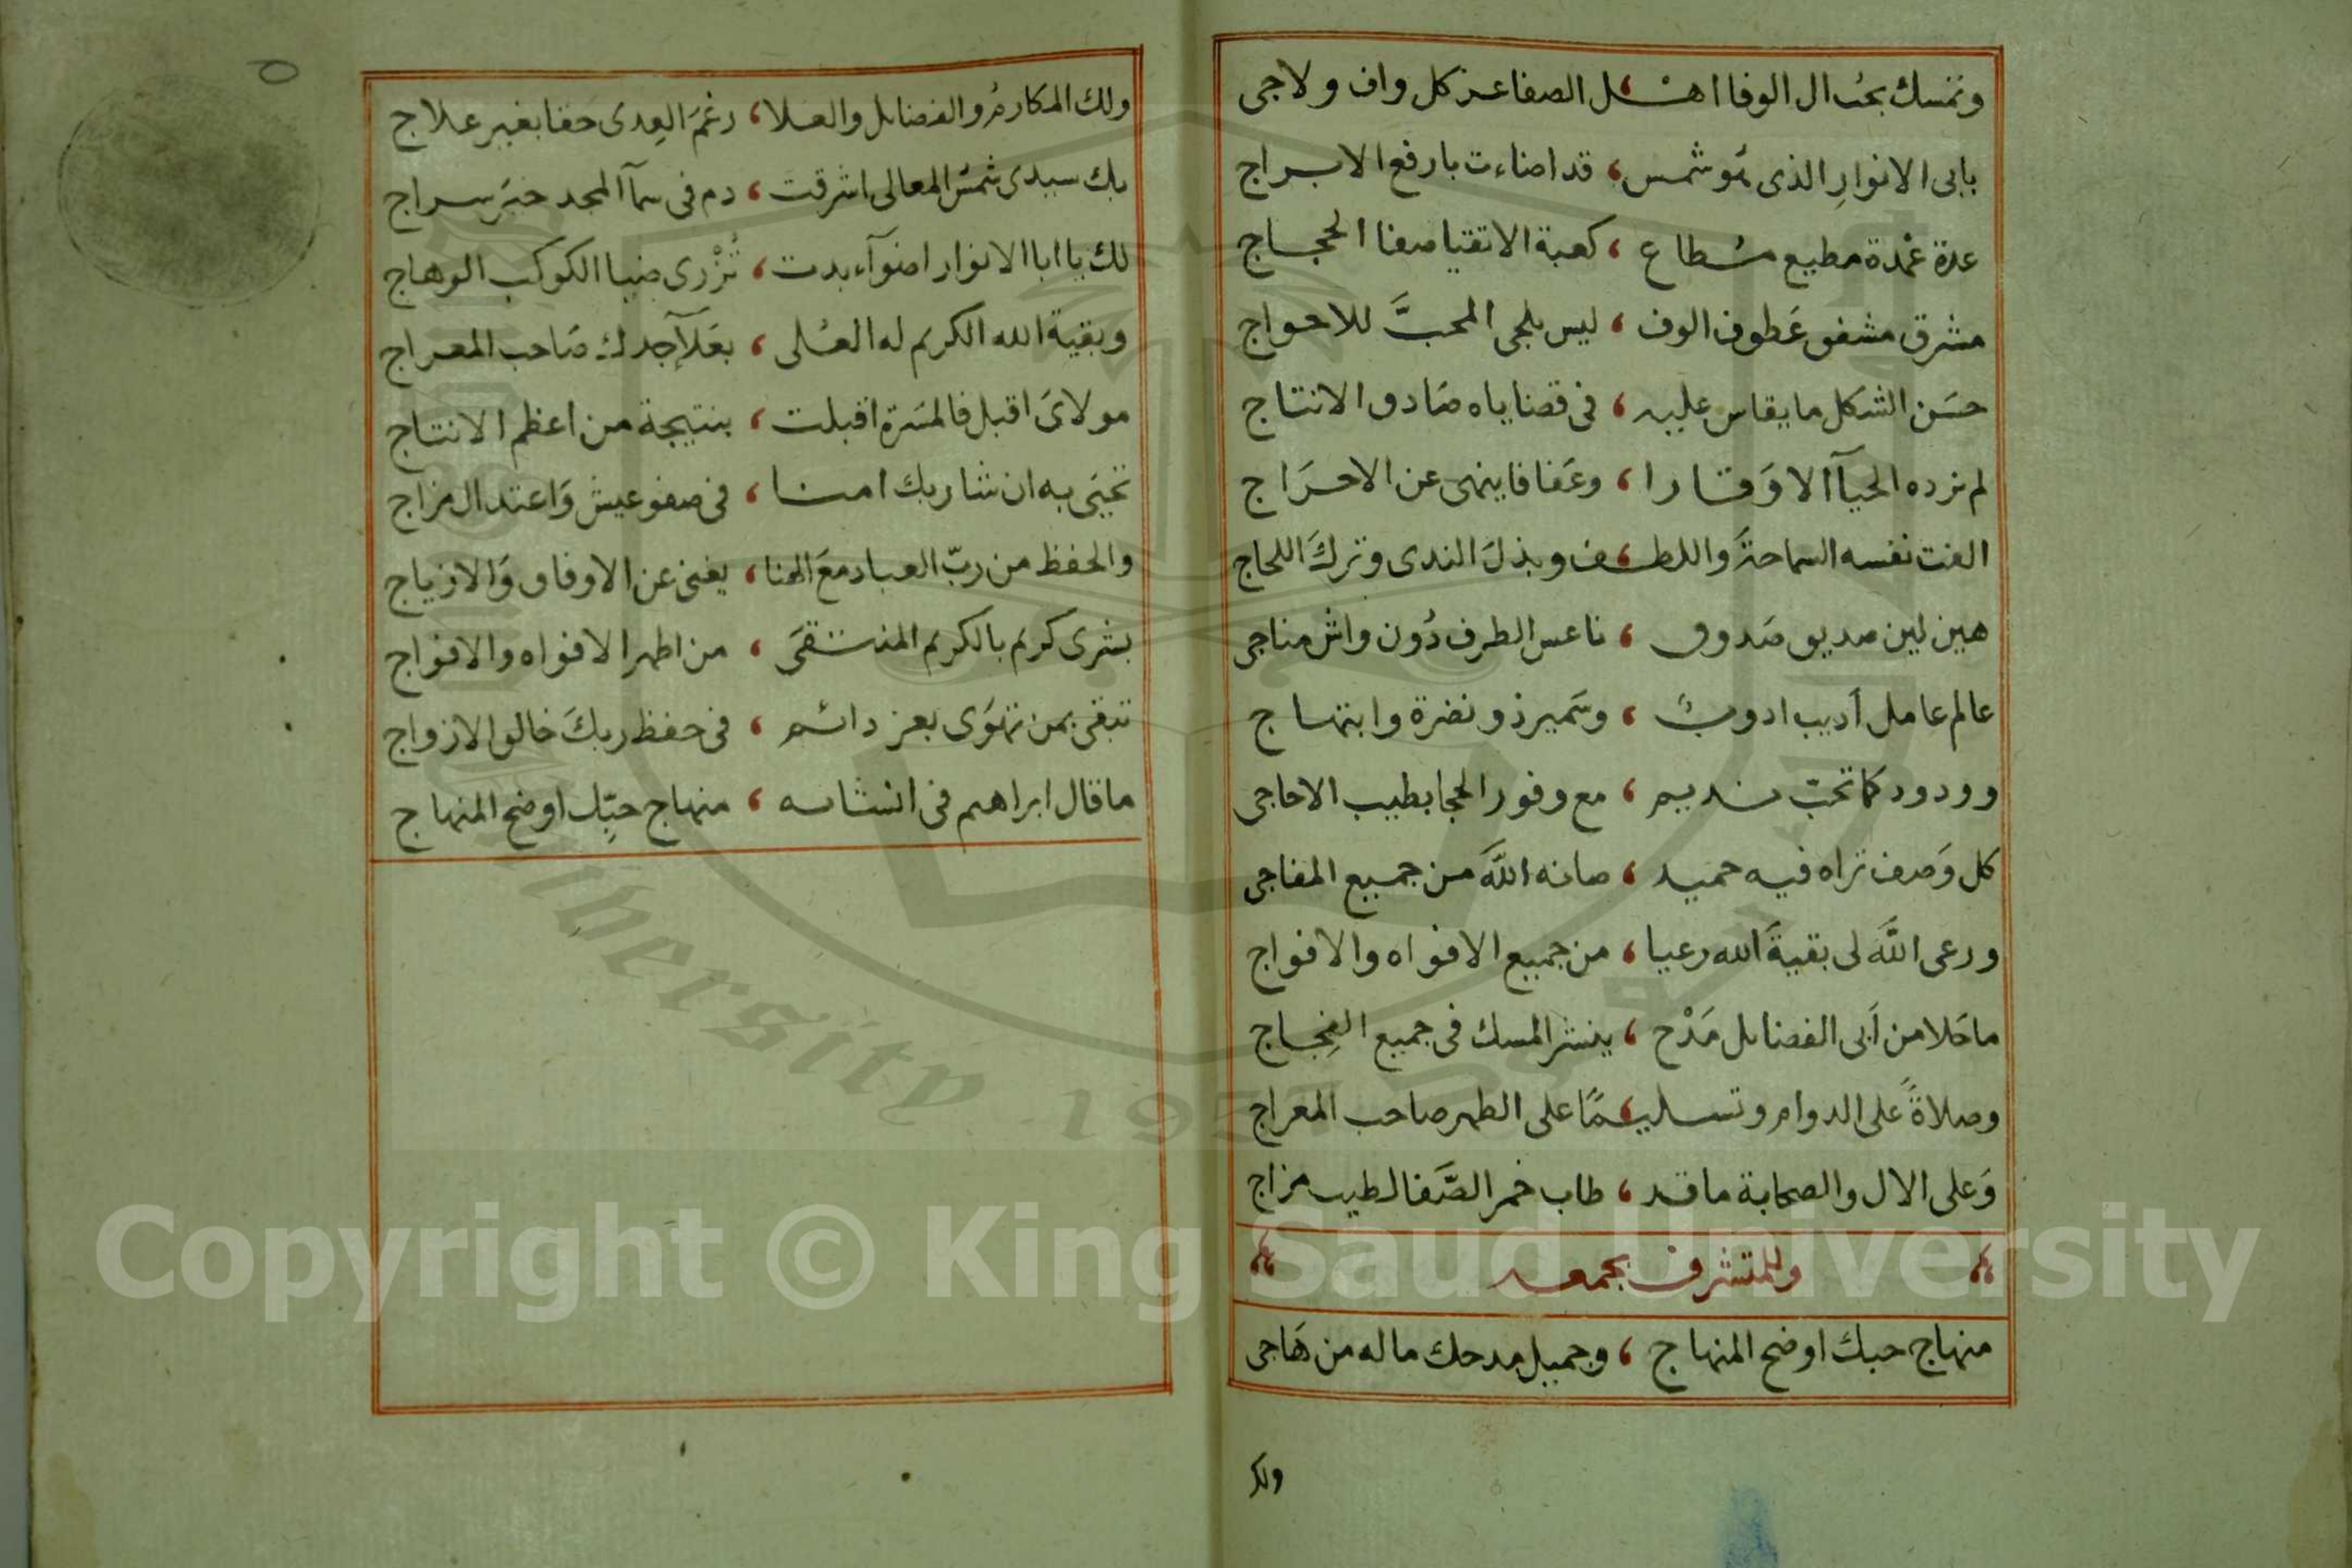 وتمسك بحب ال الوفا اهـ ، ـل الصفا عز كل واف ولاجى
بابى الانوارِ الذى هو شمس ، قد اضاءت بارفع الابراج
عدة عُمدة مطيع مُطاع ، كعبة الاتقيا صفا الحجاج
مشرق مشفق عَطوف الوف ، ليس يلجى المحبَّ للاحواج
حسَن الشكل ما يقاس عليه ، فى قضاياه صَادق الانتاج
لم تزده الحيآ الا وَقارا ، وعَفافا ينهى عن الاحرَاج
الفت نفسه السماحةَ واللطـ ، ـف وبذلَ الندى وتركَ اللجاج
هين لين صديق صَدوق ، ناعس الطرف دُون واش مناجى
عالم عامل أديب ادوبٌ ، وسَمير ذو نضرة وابتهاج
وودود كما تحبّ نديم ، مع وفور الحجا بطيب الاحاجى
كل وَصف تراه فيه حميد ، صانه اللَّه من جميع المفاجى
ورعى اللَّه لى بقيةَ الله رعيا ، من جميع الافواه والافواج
ما حَلا من أبى الفضايل مَدْح ، ينشر المسك فى جميع الفِجاج
وصلاةً على الدوام وتسليـ ، ـمًا على الطهر صاحب المعراج
وَعلى الال والصحابة ما قد ، طاب خمر الصَّفا لطيب مزاج
وللمتشرف بجمعه
منهاج حبك اوضح المنهاج ، وجميل مدحك ما له من هَاجى
ولك
٥
ولك المكارمُ والفضايل والعلا ، رغمَ العِدى حقا بغير علاج
بك سيدى شمسُ المعالى اشرقت ، دم فى سمآ المجد خيَر سراج
لك يا ابا الانوار اضوآء بدت ، تُزْرى ضيا الكوكب الوهاج
وبقية الله الكريم له العُلى ، بعَلآ جدك صَاحب المعراج
مولاىَ اقبل فالمسَرة اقبلت ، بنتيجة من اعظم الانتاج
تحيَى به ان شا ربك امنا ، فى صفو عيش وَاعتدال مزاج
والحفظ من ربّ العباد معَ الهنا ، يغنى عن الاوفاق وَالازياج
بشرى كريم بالكريم المنتقىَ ، من اطهر الافواه والافواج
تبقى بمن تهوَى بعز دائم ، فى حفظ ربكَ خالق الازواج
ما قال ابراهيم فى انشائه ، منهاج حبِّك اوضح المنهاج
Copyright © King Saud University
University 1957